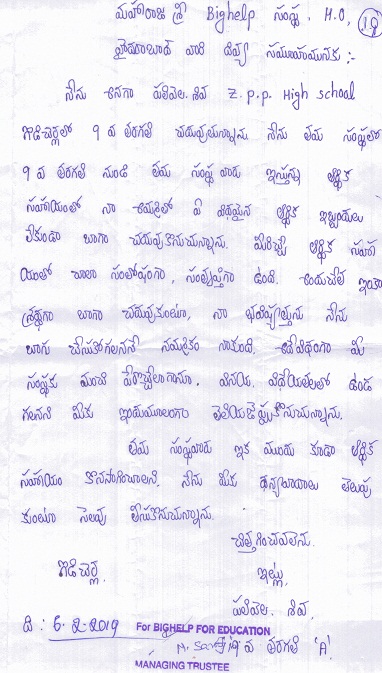 మహారాజ శ్రీ Bighelp సంస్థ. H.O,
19
హైదరాబాద్ వారి దివ్య సముఖమునకు :-
నేను అనగా పలివెల. శివ Z.P.P. High school
గొడిచర్లలో 9 వ తరగతి చదువుతున్నాను నేను తమ సంస్థలో
9 వ తరగతి నుండి తమ సంస్థ వారు ఇస్తున్న ఆర్థిక
సహాయంలో నా చదువులో ఏ విధమైన ఆర్థిక ఇబ్బందులు
లేకుండా బాగా చదువుకొనుచున్నాను. మీరిచ్చే ఆర్థిక సహా
యంలో చాలా సంతోషంగా, సంతృప్తిగా ఉంది. అందుచేత ఇంకా
శ్రద్ధగా బాగా చదువుకుంటూ, నా భవిష్యత్తును నేను
బాగు చేసుకోగలనని నమ్మకం నాకుంది. అదేవిధంగా మీ
సంస్థకు మంచి పేరుతెచ్చేలాగానూ. వినయ. విధేయతలలో ఉండ
గలనని మీకు ఇందుమూలంగా తెలియజేస్తుకొనుచున్నాను.
తమ సంస్థవారు ఇక ముందు కూడా ఆర్థిక
సహాయం కొనసాగించాలని. నేను మీకు ధన్యవాదాలు తెలుపు
కుంటూ సెలవు తీసుకొనుచున్నాను.
చిత్తగించవలెను.
గొడిచర్ల. ఇట్లు,
పలివెల. శివ.
ది : 6-2-2019 For BIGHELP FOR EDUCATION
9 వ తరగతి 'A'
MANAGING TRUSTEE